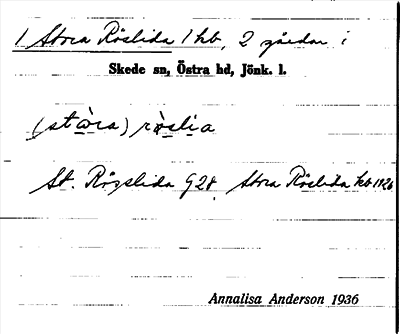 1 Stora Röslida 1 hb, 2 gårdar i
Skede sn, Östra hd, Jönk. l.
(stò̤ra) rò̤slia
St. Rögslida G28 Stora Röslida hb 1926
Annalisa Anderson 1936